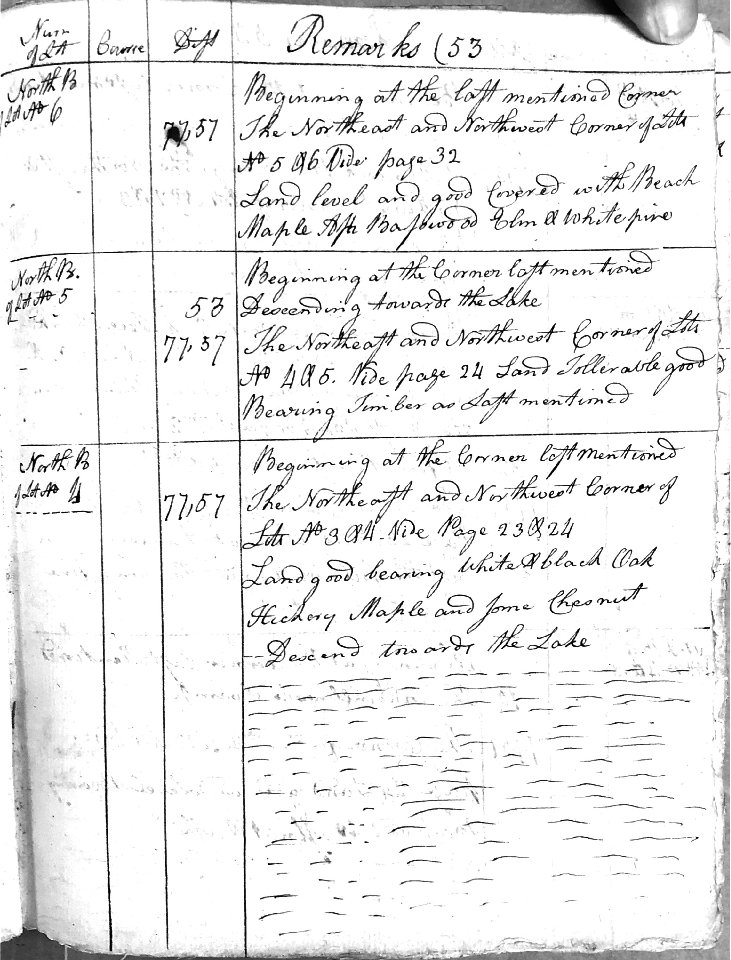 Num of Lot Course Dist Remarks (53
North B
of Lot No 6
Beginning at the last mentioned Corner
77,57 The Northeast and Northwest Corner of Lots
No 5 & 6 Vide page 32
Land level and good Covered with Beach
Maple Ash Basswood Elm & White pine
North B.
of Lot No 5
Beginning at the Corner last mentioned
53 Descending towards the Lake
77,57 The Northeast and Northwest Corner of Lots
No 4 & 5. Vide page 24 Land Tollerable good
Bearing Timber as Last mentioned
North B
of Lot No 4
Beginning at the Corner last mentioned
77,57 The Northeast and Northwest Corner of
Lots No 3 & 4 Vide Page 23 & 24
Land good bearing White & black Oak
Hickery Maple and some Chesnut
Descend towards the Lake